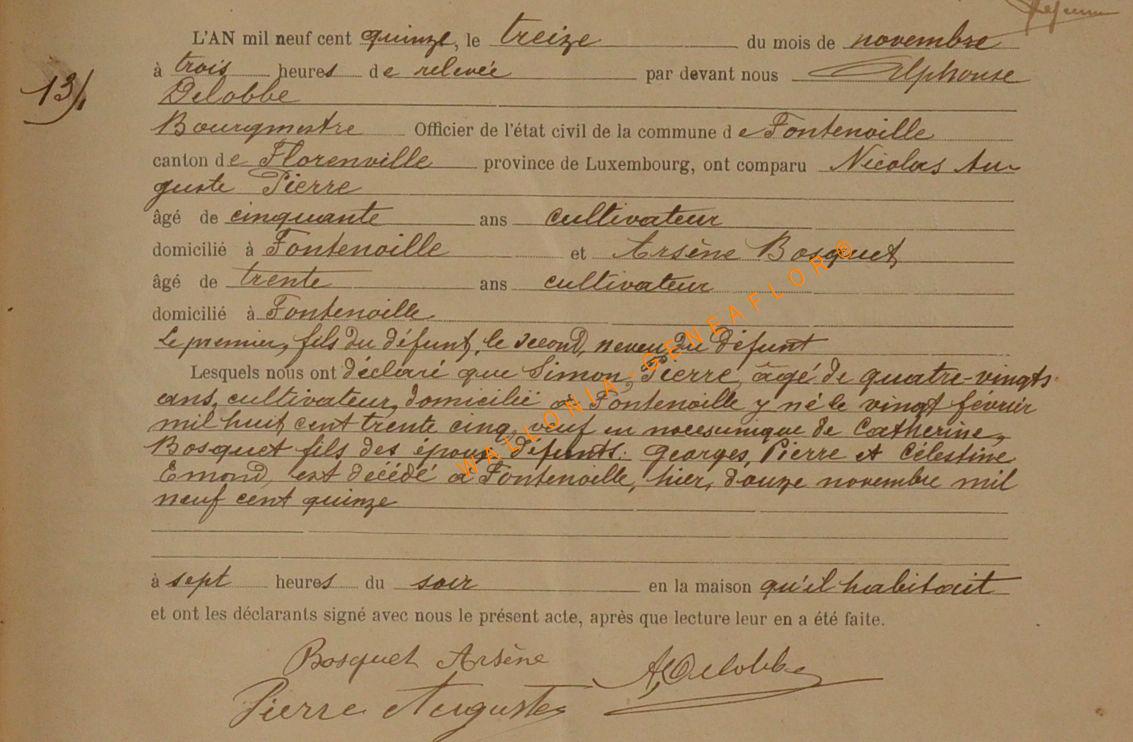 L'AN mil neuf cent quinze, le treize du mois de novembre
à trois heures de relevée par devant nous Alphonse
13/
Delobbe
Bourgmestre Officier de l'état civil de la commune de Fontenoille
canton de Florenville province de Luxembourg, ont comparu Nicolas Au-
guste Pierre
âgé de cinquante ans cultivateur
domicilié à Fontenoille et Arsène Bosquet
âgé de trente ans cultivateur
domicilié à Fontenoille
Le premier, fils du défunt, le second, neveu du défunt
Lesquels nous ont déclaré que Simon, Pierre, âgé de quatre-vingts
ans, cultivateur, domicilié à Fontenoille y né le vingt février
mil huit cent trente cinq, veuf en noces unique de Catherine,
Bosquet fils des époux défunts. Georges, Pierre et Célestine
Emond, est décédé à Fontenoille, hier, douze novembre mil
neuf cent quinze
à sept heures du soir en la maison qu'il habitait
et ont les déclarants signé avec nous le présent acte, après que lecture leur en a été faite.
Bosquet Arsène A. Delobbe
Pierre Auguste
WALLONIA-GENEAFLOR©